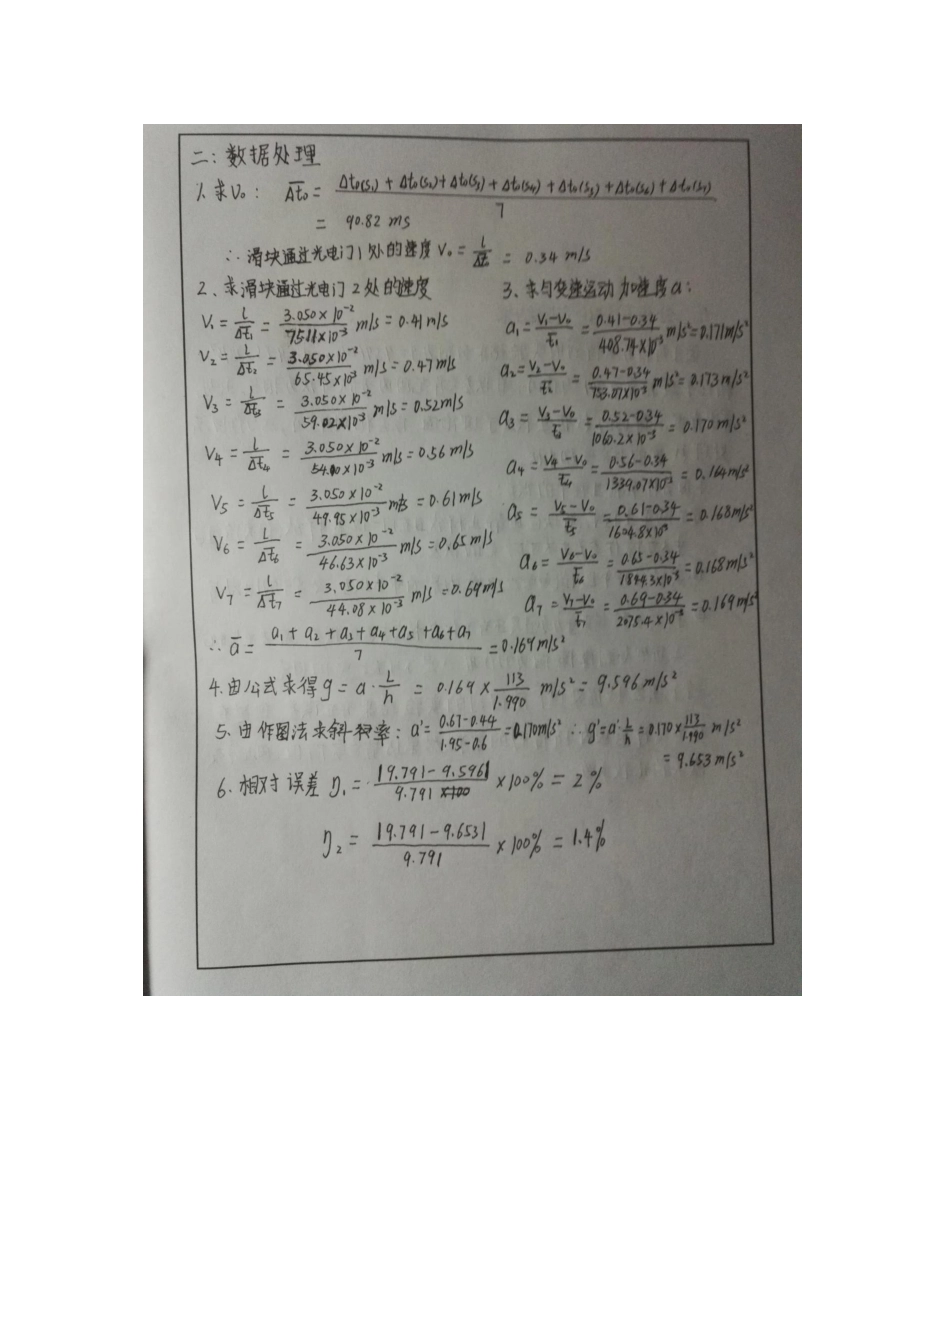 二：数据处理
1. 求V₀： Δt̄₀ = (Δt₀(s₁) + Δt₀(s₂) + Δt₀(s₃) + Δt₀(s₄) + Δt₀(s₅) + Δt₀(s₆) + Δt₀(s₇)) / 7
= 90.82 ms
∴ 滑块通过光电门1处的速度 V₀ = l/Δt₀ = 0.34 m/s
2、求滑块通过光电门2处的速度
V₁ = l/Δt₁ = (3.050×10⁻²)/(75.11×10⁻³) m/s = 0.41 m/s
V₂ = l/Δt₂ = (3.050×10⁻²)/(65.45×10⁻³) m/s = 0.47 m/s
V₃ = l/Δt₃ = (3.050×10⁻²)/(59.02×10⁻³) m/s = 0.52 m/s
V₄ = l/Δt₄ = (3.050×10⁻²)/(54.10×10⁻³) m/s = 0.56 m/s
V₅ = l/Δt₅ = (3.050×10⁻²)/(49.95×10⁻³) m/s = 0.61 m/s
V₆ = l/Δt₆ = (3.050×10⁻²)/(46.63×10⁻³) m/s = 0.65 m/s
V₇ = l/Δt₇ = (3.050×10⁻²)/(44.08×10⁻³) m/s = 0.69 m/s
3、求匀变速运动加速度a：
a₁ = (V₁-V₀)/t₁ = (0.41-0.34)/(408.74×10⁻³) m/s² = 0.171 m/s²
a₂ = (V₂-V₀)/t₂ = (0.47-0.34)/(753.07×10⁻³) m/s² = 0.173 m/s²
a₃ = (V₃-V₀)/t₃ = (0.52-0.34)/(1060.2×10⁻³) = 0.170 m/s²
a₄ = (V₄-V₀)/t₄ = (0.56-0.34)/(1339.07×10⁻³) = 0.164 m/s²
a₅ = (V₅-V₀)/t₅ = (0.61-0.34)/(1604.8×10⁻³) = 0.168 m/s²
a₆ = (V₆-V₀)/t₆ = (0.65-0.34)/(1844.3×10⁻³) = 0.168 m/s²
a₇ = (V₇-V₀)/t₇ = (0.69-0.34)/(2075.4×10⁻³) = 0.169 m/s²
∴ ā = (a₁ + a₂ + a₃ + a₄ + a₅ + a₆ + a₇) / 7 = 0.169 m/s²
4. 由公式求得 g = a·L/h = 0.169 × 113/1.990 m/s² = 9.596 m/s²
5、由作图法求斜率：a' = (0.67-0.44)/(1.95-0.6) = 0.170 m/s² ∴ g' = a'·L/h = 0.170×113/1.990 m/s²
= 9.653 m/s²
6. 相对误差 η₁ = |9.791-9.596|/9.791 ×100% = 2%
η₂ = |9.791-9.653|/9.791 × 100% = 1.4%